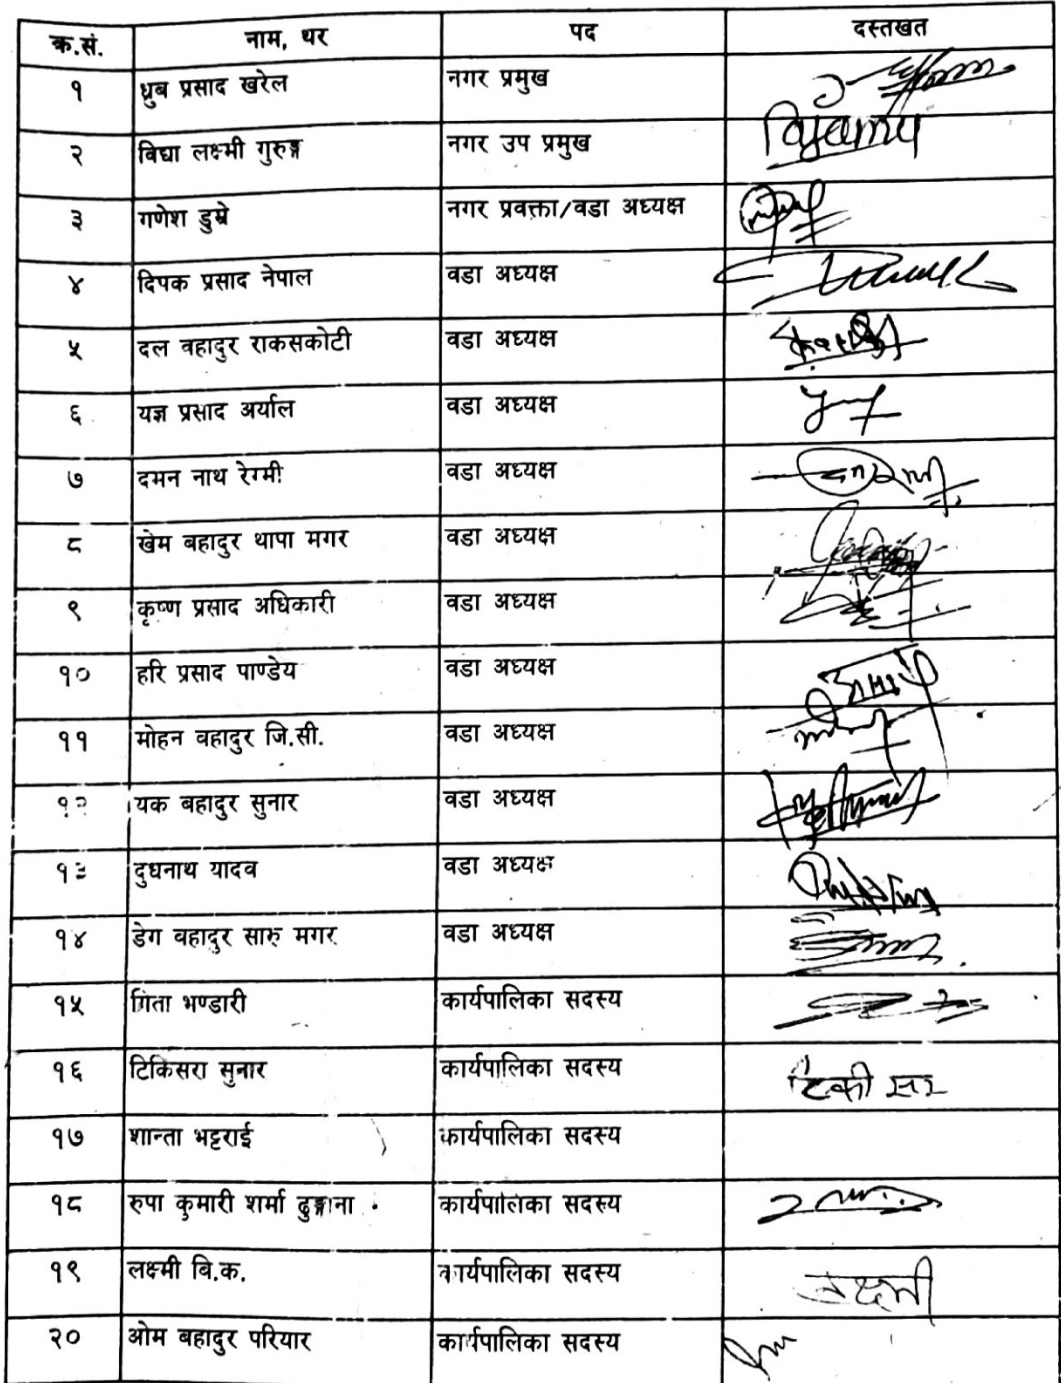 क्र.सं. नाम, थर पद दस्तखत
१ ध्रुब प्रसाद खरेल नगर प्रमुख
२ विद्या लक्ष्मी गुरुङ्ग नगर उप प्रमुख
३ गणेश डुम्रे नगर प्रवक्ता/वडा अध्यक्ष
४ दिपक प्रसाद नेपाल वडा अध्यक्ष
५ दल वहादुर राकसकोटी वडा अध्यक्ष
६ यज्ञ प्रसाद अर्याल वडा अध्यक्ष
७ दमन नाथ रेग्मी वडा अध्यक्ष
८ खेम बहादुर थापा मगर वडा अध्यक्ष
९ कृष्ण प्रसाद अधिकारी वडा अध्यक्ष
१० हरि प्रसाद पाण्डेय वडा अध्यक्ष
११ मोहन वहादुर जि.सी. वडा अध्यक्ष
१२ यक बहादुर सुनार वडा अध्यक्ष
१३ दुधनाथ यादव वडा अध्यक्ष
१४ डेग वहादुर सारु मगर वडा अध्यक्ष
१५ गिता भण्डारी कार्यपालिका सदस्य
१६ टिकिसरा सुनार कार्यपालिका सदस्य टिकी सरा
१७ शान्ता भट्टराई कार्यपालिका सदस्य
१८ रुपा कुमारी शर्मा ढुङ्गाना कार्यपालिका सदस्य
१९ लक्ष्मी बि.क. कार्यपालिका सदस्य लक्ष्मी
२० ओम बहादुर परियार कार्यपालिका सदस्य